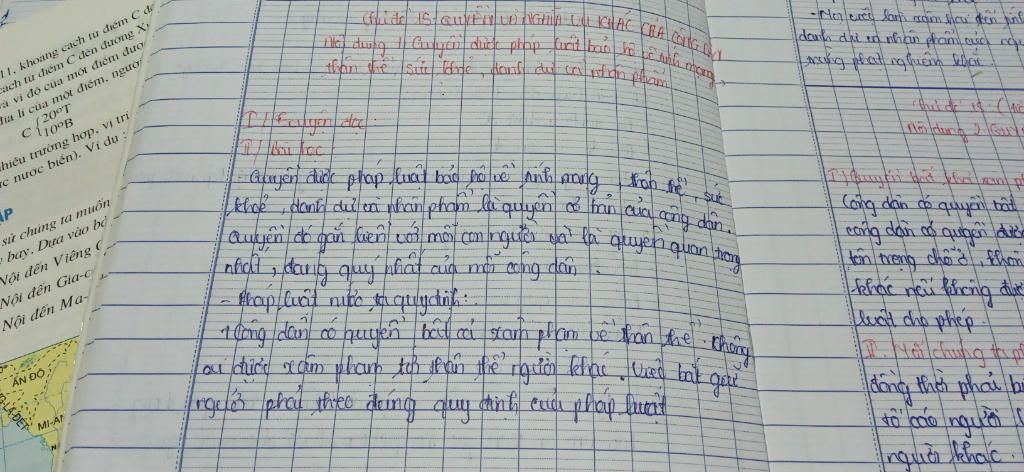 11, khoảng cách từ điểm C đế
cách từ điểm C đến đường X
và vĩ độ của một điểm đượ
địa lí của một điểm, người
C { 20°T
10°B
nhiều trường hợp, vị trí
ớc nước biển). Ví dụ :
ẬP
sử chúng ta muốn
bay. Dựa vào bả
Nội đến Viêng C
Nội đến Gia-c
Nội đến Ma-
ẤN ĐỘ
MI-A
Chủ đề 15. QUYỀN VÀ NGHĨA VỤ KHÁC CỦA CÔNG DÂN
Nội dung 1/ Quyền được pháp luật bảo hộ về tính mạng
thân thể, sức khỏe, danh dự và nhân phẩm
I / Truyện đọc:
II / Bài học
- Quyền được pháp luật bảo hộ về tính mạng, thân thể, sức
khoẻ, danh dự và nhân phẩm là quyền cơ bản của công dân.
Quyền đó gắn liền với mỗi con người và là quyền quan trọng
nhất, đáng quý nhất của mỗi công dân
- Pháp luật nước ta quy định:
+ Công dân có quyền bất cả xâm phạm về thân thể. Không
ai được xâm phạm tới thân thể người khác. Việc bắt giữ
người phải theo đúng quy định của pháp luật
danh dự và nhân phẩm của ngư
Nội dung 2 Quyề
Công dân có quyền bất
công dân có quyền được
tôn trọng chỗ ở, khôn
khác nếu không đượ
luật cho phép.
II. Nói chung ta ph
đồng thời phải bi
tố cáo người
người khác.